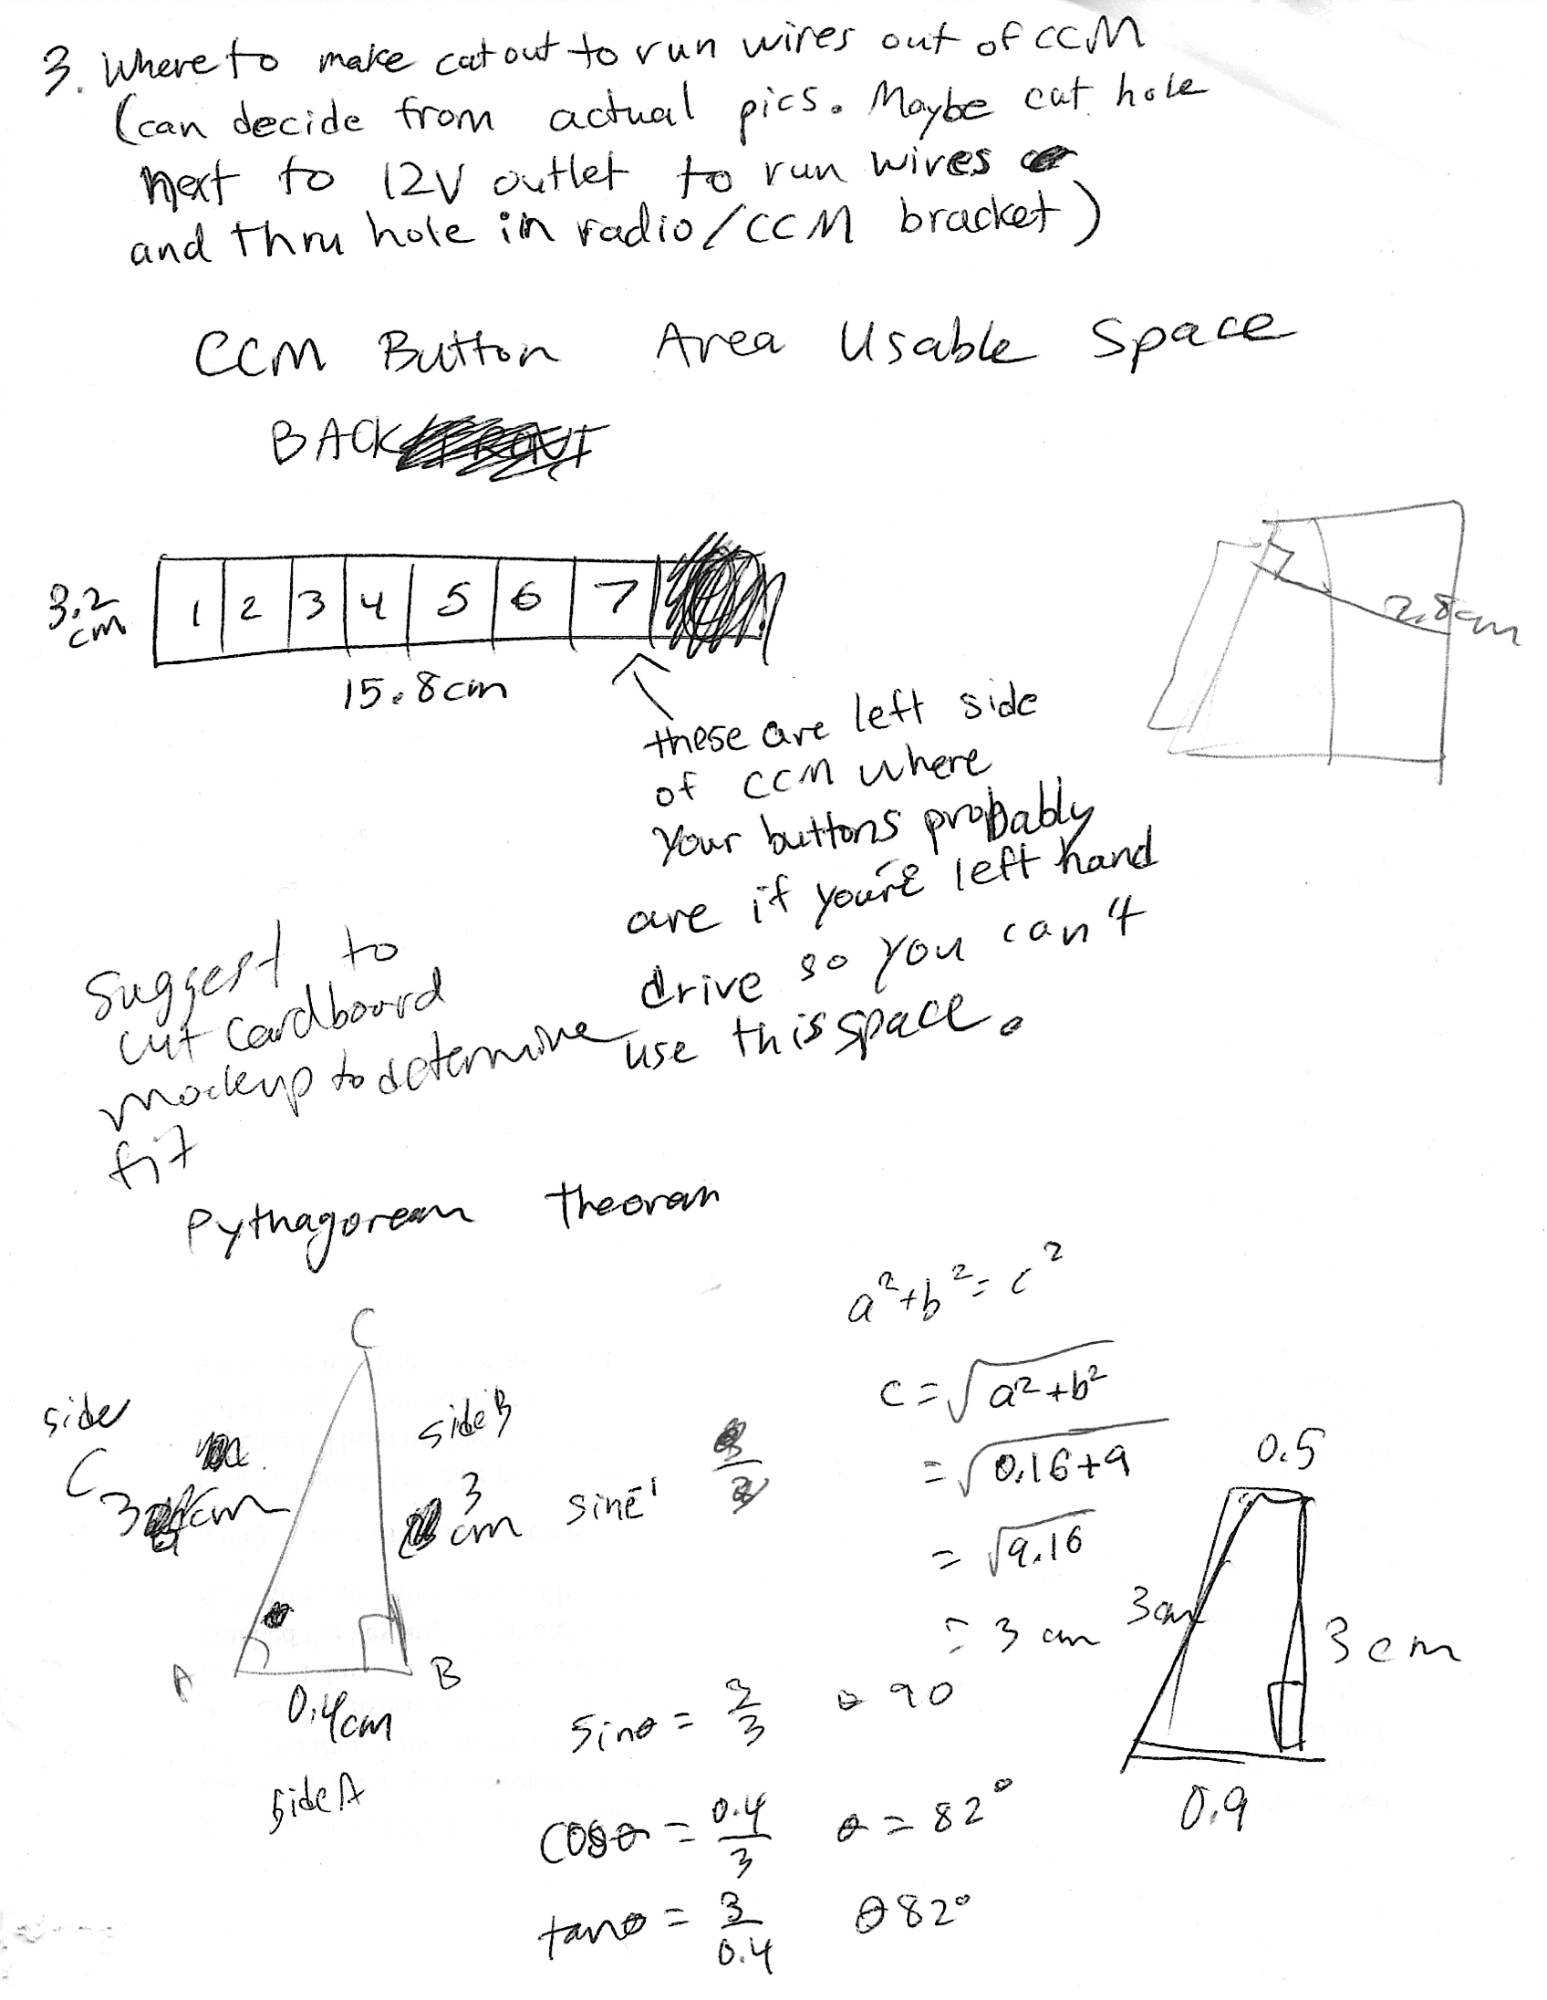 3. Where to make cutout to run wires out of CCM
(can decide from actual pics. Maybe cut hole
next to 12V outlet to run wires
and thru hole in radio/CCM bracket)
CCM Button Area Usable Space
BACK
3.2
cm
1 2 3 4 5 6 7
15.8cm
2.8cm
these are left side
of CCM where
your buttons probably
are if you're left hand
drive so you can't
use this space.
Suggest to
cut Cardboard
mockup to determine
fit
Pythagorean Theoram
a²+b²=c²
c=√a²+b²
=√0.16+9
=√9.16
= 3 cm
C
side
C
3 cm
side B
3
cm
sine⁻¹
A
B
0.4cm
side A
sinθ = 3/3 θ 90
cosθ = 0.4/3 θ = 82°
tanθ = 3/0.4 θ 82°
0.5
3cm
3cm
0.9